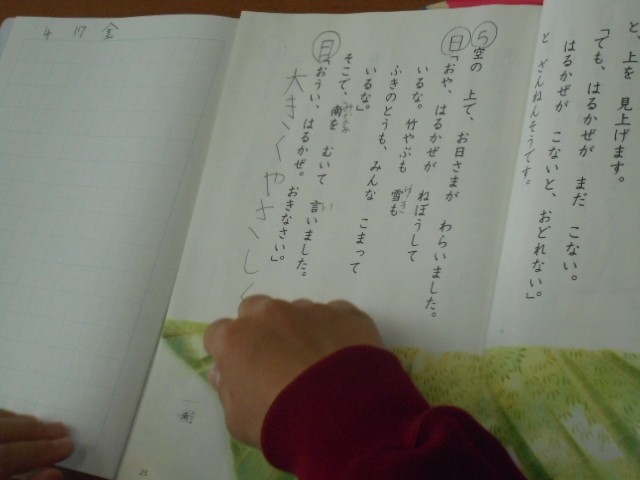 と、上を 見上げます。
「でも、はるかぜが まだ こない。
はるかぜが こないと、おどれない」
と ざんねんそうです。
5
空の 上で、お日さまが わらいました。
日
「おや、はるかぜが ねぼうして
いるな。竹やぶも 雪も
ふきのとうも、みんな こまって
いるな」
そこで、南を むいて 言いました。
日
「おうい、はるかぜ。おきなさい」
大きくやさしく
4 17 金
25